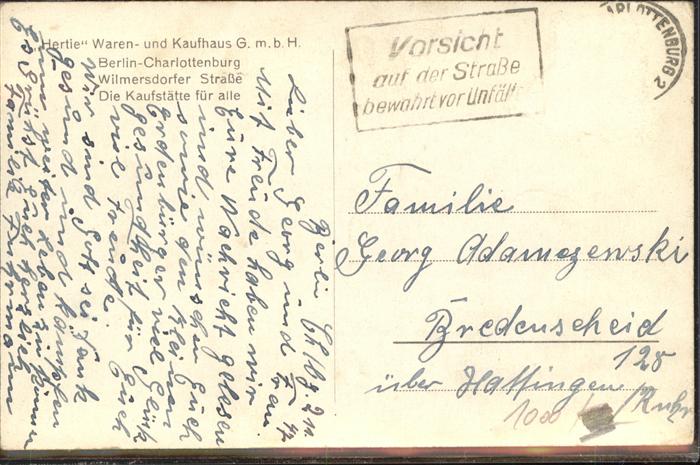 „Hertie" Waren- und Kaufhaus G. m. b. H.
Berlin-Charlottenburg
Wilmersdorfer Straße
Die Kaufstätte für alle
Vorsicht
auf der Straße
bewahrt vor Unfäll
CHARLOTTENBURG 2
Berlin
Lieber Georg und Frau.
Mit Freude haben wir
Eure Nachricht gelesen
und wünschen Euch
sowie den kleinen
Erdenbürger viel Glück
Gesundheit für Euch
viel Freude.
Wir sind Gott sei Dank
gesund und
weiter
Es grüßt Euch herzlich
Familie
Familie
Georg Adamczewski
Bredenscheid
125
über Hattingen
/Ruhr
1000